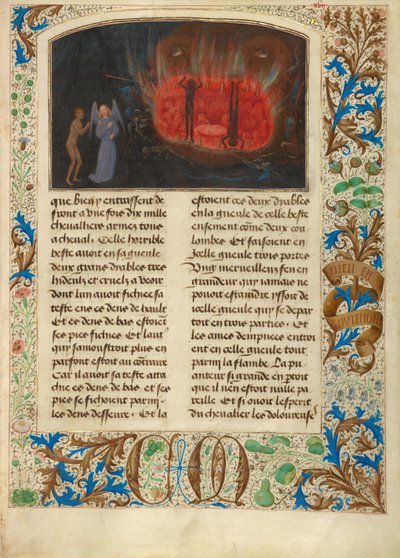 que bien y entrassent de
front a une fois dix mille
chevalliers armez tous
a cheval. Celle horrible
beste avoit en sa gueule
deux grans dyables tres
hideulx et cruelz a veoir
dont lun avoit fichee sa
teste ens es dens de hault
Et es dens de bas estoient
ses piez fichiez Et lautre
qui samoustroit plus en
parfont estoit au contraire
Car il avoit sa teste atta
chie es dens de bas et ses
piez se fichoient parmy
les dens desseure. Et la
estoient ces deux dyables
en la gueule de celle beste
ensement come deux cou
lombes Et faisoient en
icelle gueule trois portes
Ung merveilleux feu en
grandeur qui jamais ne
pouoit estaindre yssoit de
celle gueule qui se depar
toit en trois parties. Et
les ames dampnees entroi
ent en celle gueule tout
parmy la flambe. La pu
anteur si grande en partoit
que il nen estoit nulle pa
reille. Et si ouoit lesperit
du chevalier les doloureuses
BIEN EN
ADVIENGNE
CM